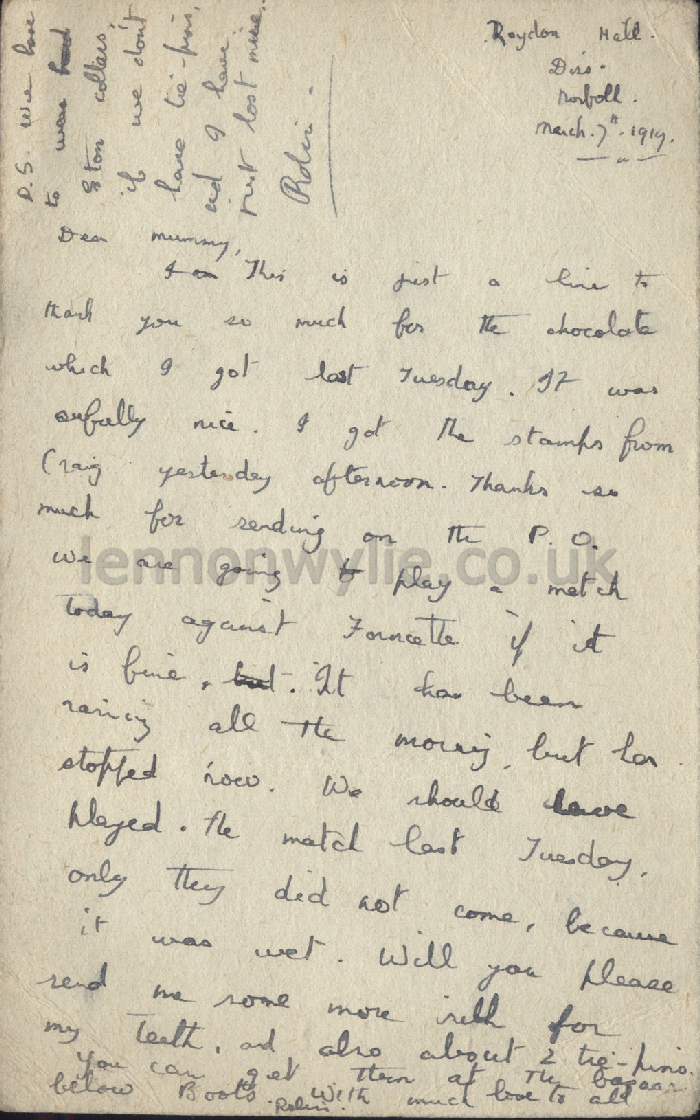 Roydon Hall.
Diss.
Norfolk.
March. 7th. 1919.
Dear mummy,
This is just a line to
thank you so much for the chocolate
which I got last Tuesday. It was
awfully nice. I got the stamps from
Craig yesterday afternoon. Thanks so
much for sending on the P.O.
We are going to play a match
today against Forncette if it
is fine. It has been
raining all the morning, but has
stopped now. We should have
played. the match last Tuesday,
only they did not come, because
it was wet. Will you please
send me some more for
my teeth, and also about 2 tie-pins.
You can get them at the bazaar
below Boots. With much love to all
Robin.
P.S. We have
to wear
Eton collars,
if we don't
have tie-pins,
and I have
just lost mine.
Robin.
lennonwylie.co.uk